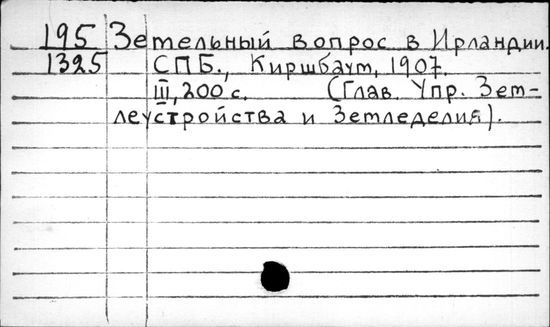 195 Земельный вопрос в Ирландии.
1325 СПБ., Киршбаум, 1907.
III, 200 с. (Глав. Упр. Зем-
леустройства и Земледелия).